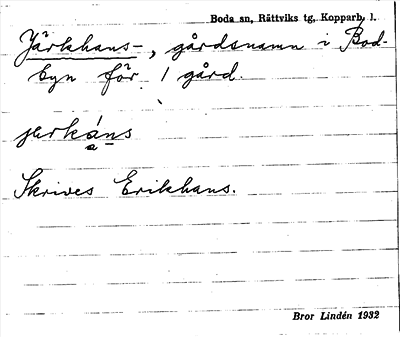 Boda sn, Rättviks tg, Kopparb. l.
Järkhans-, gårdsnamn i Bod-
byn för 1 gård.
jærkáns
a
Skrives Erikhans.
Bror Lindén 1932